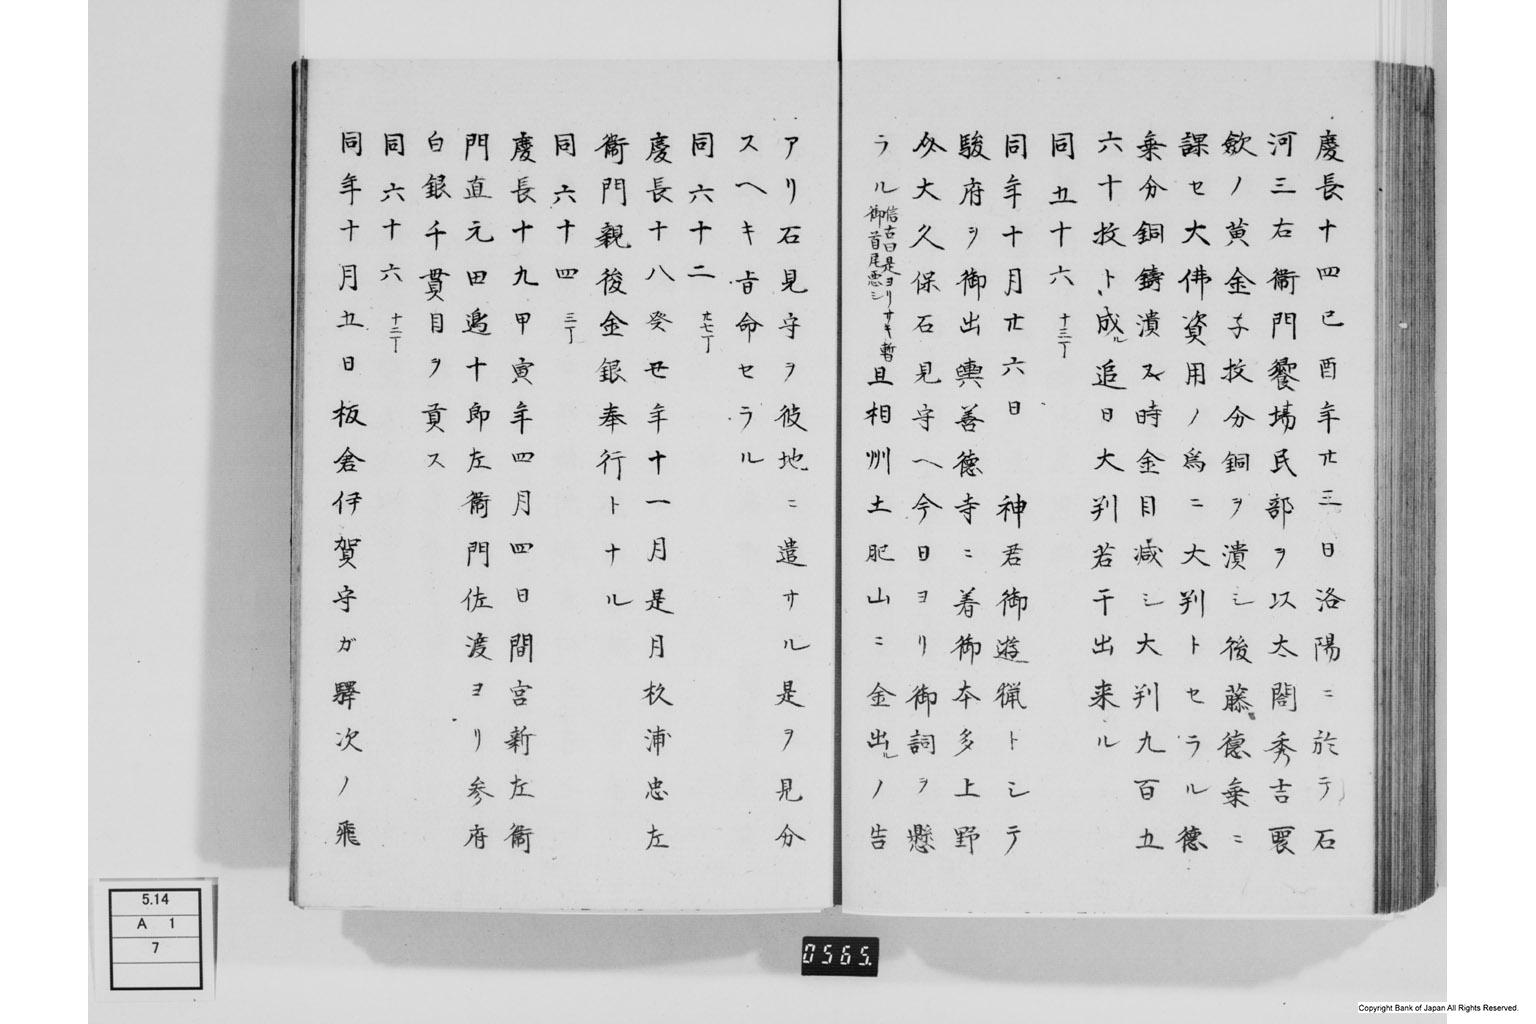 慶長十四己酉年廿三日洛陽ニ於テ石
河三右衛門饗場民部ヲ以太閤秀吉裏
歛ノ黄金子抆分銅ヲ潰シ後藤徳乗ニ
課セ大佛資用ノ為ニ大判トセラル徳
乗分銅鋳潰ス時金目减シ大判九百五
六十抆ト成ル追日大判若干出来ル
同五十六 十三丁
同年十月廿六日 神君御遊猟トシテ
駿府ヲ御出輿善德寺ニ着御本多上野
大久保石見守ヘ今日ヨリ御詞ヲ懸
ラル 信古曰是ヨリサキ暫御首尾悪シ 且相州土肥山ニ金出ルノ告
アリ石見守ヲ彼地ニ遣サル是ヲ見分
スヘキ旨命セラル
同六十二 廿七丁
慶長十八癸丑年十一月是月杦浦忠左
衛門親後金銀奉行トナル
同六十四 三丁
慶長十九甲寅年四月四日間宮新左衛
門直元田邉十郎左衛門佐渡ヨリ参府
白銀千貫目ヲ貢ス
同六十六 十二丁
同年十月五日板倉伊賀守ガ驛次ノ飛
5.14
A 1
7
0565.
Copyright Bank of Japan All Rights Reserved.